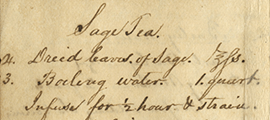 Sage Tea.
2. Dried leaves of Sage. ½ ℥s.
3. Boiling water. 1. quart.
Infuse for ½ hour & strain.